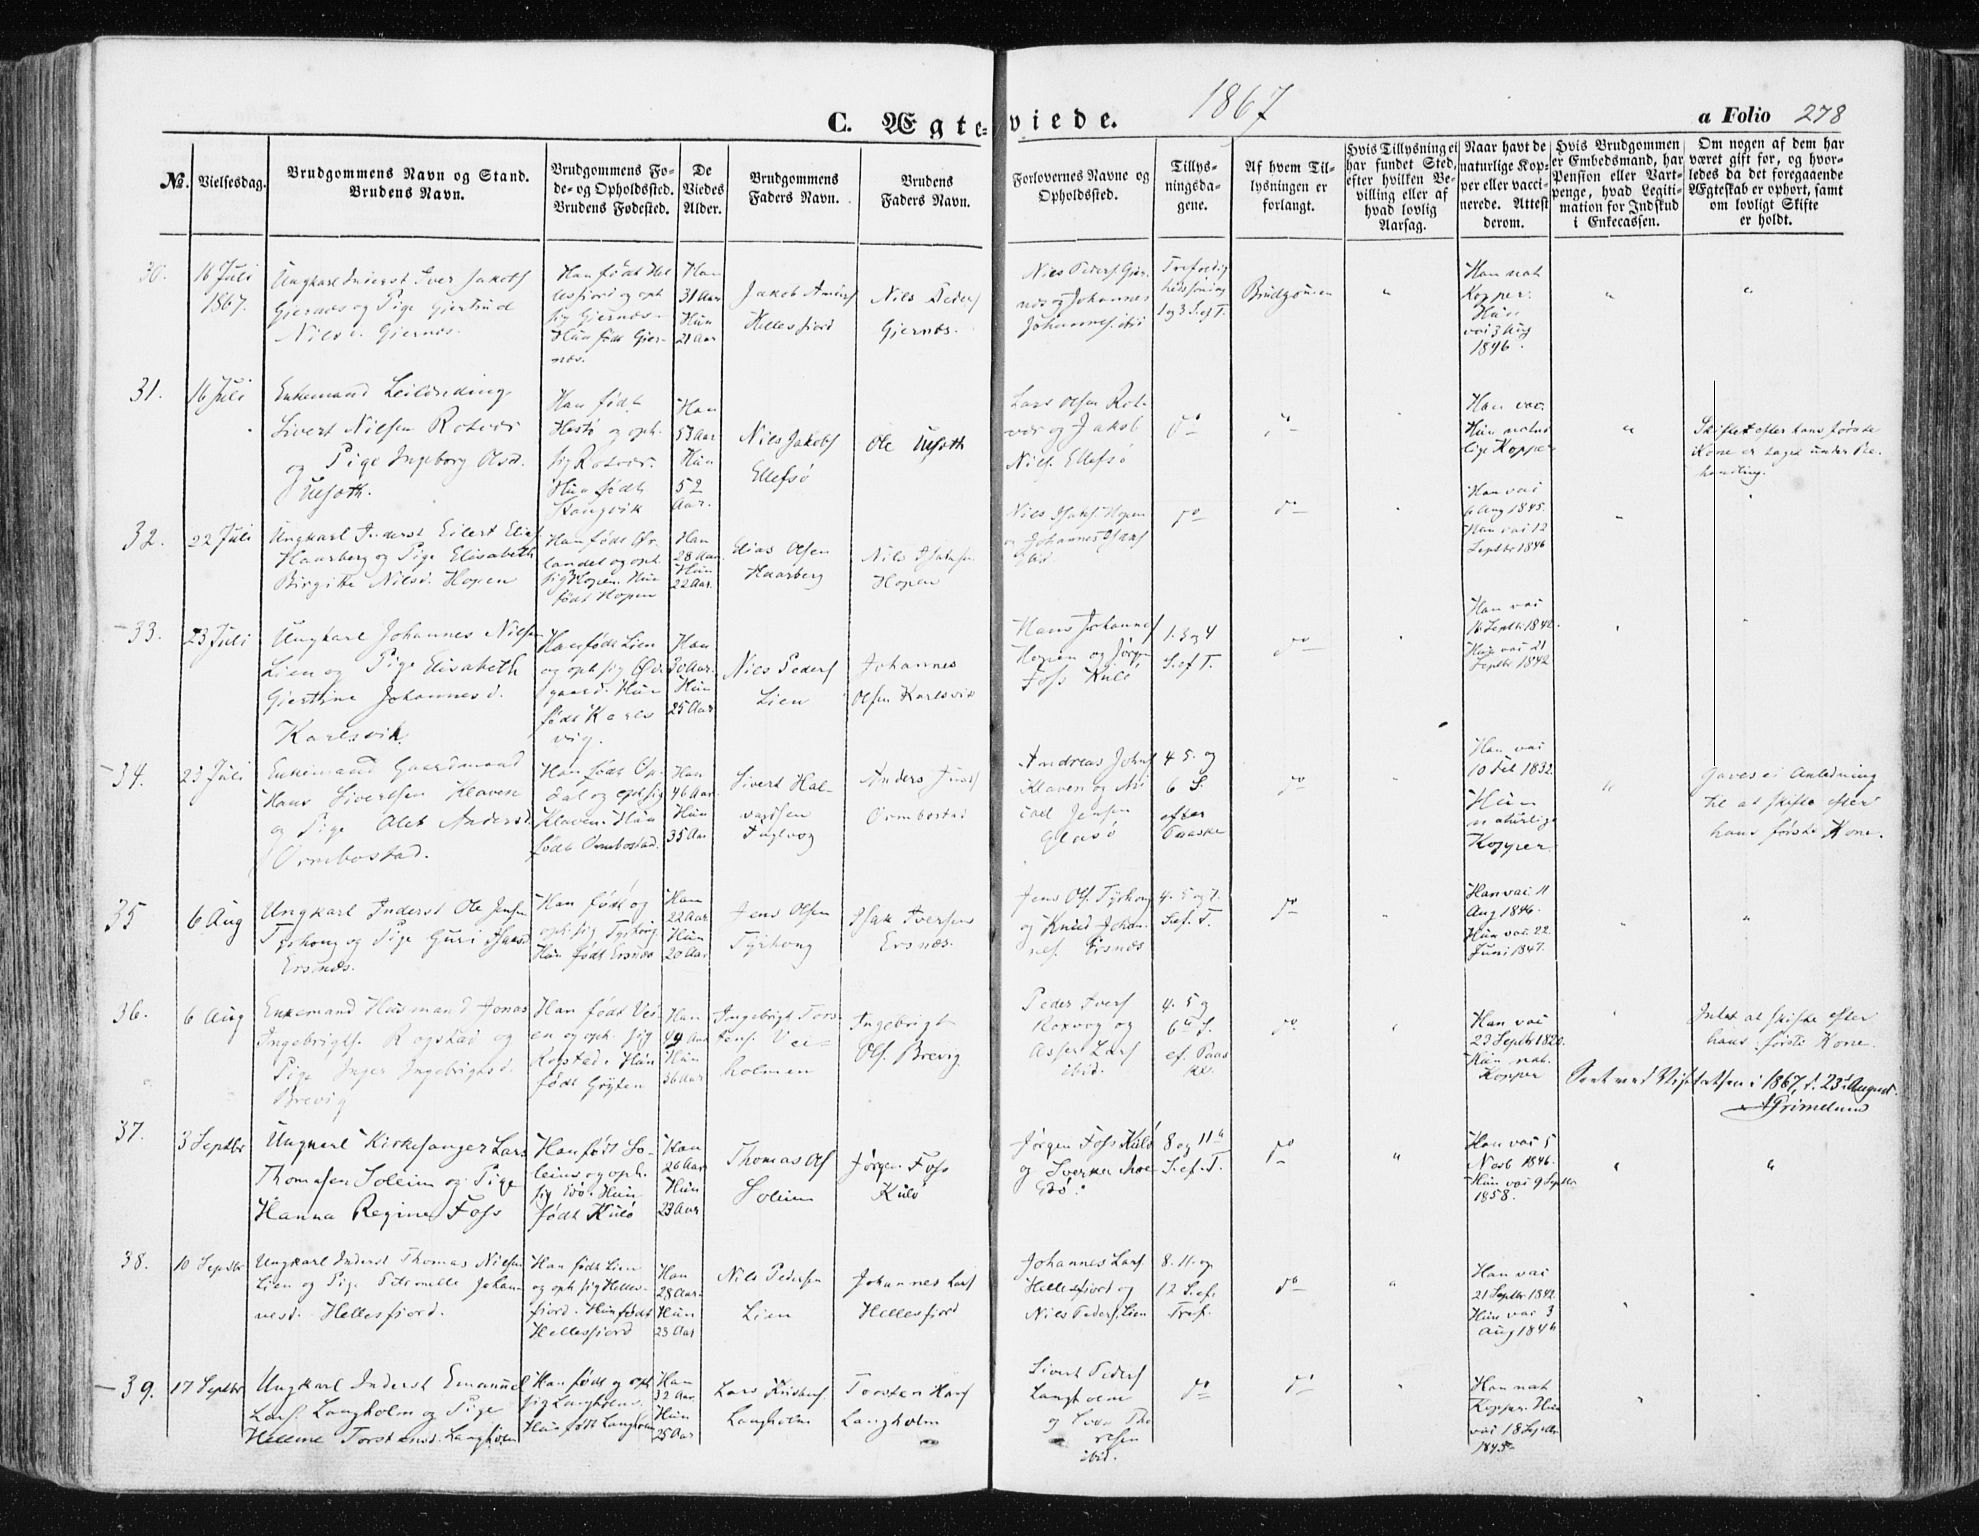 C. Ægte-
viede.
1867
a Folio 278
No.
Vielsesdag.
Brudgommens Navn og Stand.
Brudens Navn.
Brudgommens Fø-
de- og Opholdssted.
Brudens Fødested.
De
Viedes
Alder.
Brudgommens
Faders Navn.
Brudens
Faders Navn.
Forlovernes Navne og
Opholdssted.
Tillys-
ningsda-
gene.
Af hvem Til-
lysningen er
forlangt.
Hvis Tillysning ei
har fundet Sted,
efter hvilken Be-
villing eller af
hvad lovlig
Aarsag.
Naar havt de
naturlige Kop-
per eller vacci-
nerede. Attest
derom.
Hvis Brudgommen
er Embedsmand, har
Pension eller Vart-
penge, hvad Legiti-
mation for Indskud
i Enkecassen.
Om nogen af dem har
været gift før, og hvor-
ledes da det foregaaende
Ægteskab er ophørt, samt
om lovligt Skifte
er holdt.
30.
16 Juli
1867.
Ungkarl Inderst Iver Jakobs
Gjernæs og Pige Gjertrud
Nilsd. Gjernæs.
Han født Hel
lesfjord og oph
sig Gjernæs.
Hun født Gjer-
næs.
Han
31 Aar
Hun
21 Aar
Jakob
Hellesfjord
Nils Peders
Gjernæs.
Nils Peders Gjer-
næs og Johannes
Johannes. ibid
1 og 3 S. ef T.
Brudgommen
"
Han nat
Kopper.
Hun
vac 3 Aug
1846.
"
"
31.
16 Juli
Enkemand Leilænding
Sivert Nilsen Rotvær
og Pige Ingeborg Olsd.
Ulsæth.
Han født
Hestø og oph.
sig Rotvær.
Hun født
Stangvik
Han
53 Aar
Hun
52
Aar.
Nils Jakobs
Ellefsø
Ole Ulsæth
Lars Olsen Rot-
vær og Jakob
Nils. Ellefsø
do
do
"
Han vac.
Hun natur
lige Kopper
"
Skiftet efter hans første
Kone er taget under Be-
handling.
32.
22 Juli
Ungkarl Inderst Eilert Elias
Haarberg og Pige Elisabeth
Birgitte Nilsd. Hopen
Han født Ør
landet og oph
sig Hopen. Hun
født Hopen
Han
28 Aar
Hun
22 Aar.
Elias Olsen
Haarberg
Nils Isaksen
Hopen
Nils Isaks Hopen
og Johannes Isaks
ibid.
do
do
Han vac
6 Aug 1845.
Hun vac 12
Septbr 1846
33.
23 Juli
Ungkarl Johannes Nilsen
Lien og Pige Elisabeth
Gjertine Johannesd.
Karlsvik.
Han født Lien
og oph sig Ød-
gaard. Hun
født Karls
vig.
Han
30 Aar.
Hun
25 Aar
Nils Peders
Lien
Johannes
Olsen Karlsvik
Hans Johannes
Hopen og Jørgen
Fofs Kulø
1. 3 og 4
S. ef T.
do
Han vac
16 Septbr 1842.
Hun vac 21
Septbr 1842
34.
23 Juli
Enkemand Gaardmand
Hans Sivertsen Klaven
og Pige Alet Andersd.
Ormbostad.
Han født Op-
dal og oph sig
Klaven. Hun
født Ormbostad.
Han
46 Aar
Hun
35 Aar
Sivert Hal-
vardsen
Fuglvog
Anders
Ormbostad
Andreas Johns
Klaven og Mi
cael Jensen
Glasø
4 5. og
6 S.
efter
Paaske
do
Han vac
10 Feb 1832.
Hun
naturlige
Kopper
"
Gaves ei Anledning
til at skifte efter
hans første Kone.
35
6 Aug
Ungkarl Inderst Ole Jensen
Tyrhoug og Pige Guri Isaksd
Ersnæs.
Han født og
oph sig Tyrhoug
Hun født Ersnæs
Han
22 Aar
Hun
20 Aar
Jens Olsen
Tyrhoug
Isak Iversen
Ersnæs.
Jens Ols. Tyrhoug
og Knud Johan-
nes. Ersnæs
4. 5 og 7.
S. ef. T.
do
Han vac 11
Aug 1846.
Hun vac 22
Juni 1847.
36.
6 Aug
Enkemand Husmand Jonas
Ingebrigts. Rogstad og
Pige Inger Ingebrigtsd.
Brevig
Han født Vei-
en og oph. sig
Rogstad. Hun
født Grÿten
Han
49 Aar
Hun
36 Aar
Ingebrigt Tors
tens. Vei-
holmen
Ingebrigt
Ols. Brevig
Peder Ivers
Roxvog og
Asser Lars
ibid.
4. 5 og
6te S.
ef. Paas
ke.
do
Han vac
23 Septbr 1820.
Hun nat.
Kopper
Intet at skifte efter
hans første Kone.
Seet ved Visitatsen i 1867 d. 23d August.
AGrimelund
37.
3 Septbr
Ungkarl Kirkesanger Lars
Thomasen Soleim og Pige
Hanna Regine Fofs
Han født So-
leims og oph.
sig Edø. Hun
født Kulø
Han
26 Aar
Hun
23 Aar
Thomas Ols
Soleim
Jørgen Fofs
Kulø
Jørgen Fofs Kulø
og Sverker Moe
Edø.
8 og 11te
S. ef. T.
do
"
Han vac 5
Novb 1846.
Hun vac 9 Septbr
1858.
"
"
38.
10 Septbr
Ungkarl Inderst Thomas Nilsen
Lien og Pige Petronelle Johan
nesd. Hellesfjord.
Han født Lien
og oph sig Helles-
fjord. Hun født
Hellesfjord
Han
28 Aar.
Hun
23 Aar
Nils Pedersen
Lien
Johannes Lars
Hellesfjord
Johannes Lars
Hellesfjord og
Nils Peders. Lien
8. 11. og
12 S. ef.
Tref.
do
"
Han vac
21 Septbr 1842
Hun vac 3
Aug 1846
39.
17 Septbr
Ungkarl Inderst Emanuel
Lars. Langholm og Pige
Hellene Torstensd. Langholm
Han født og oph
sig Langholm.
Hun født Langholm
Han
32 Aar
Hun
25 Aar
Lars
Langholm
Torsten Hans
Langholm
Sivert Peders
Langholm
og
ibid.
do
do
Han nat
Kopper. Hun
vac 18 Septbr
1845